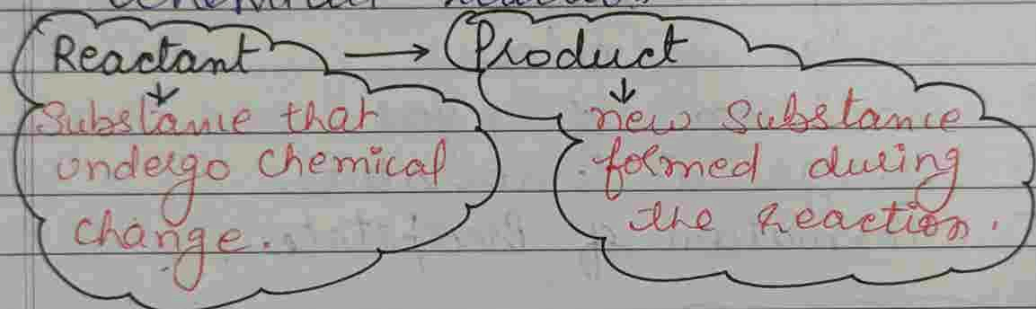 Reactant → Product
↓ ↓
Substance that
undergo chemical
change.
new Substance
formed during
the Reaction.